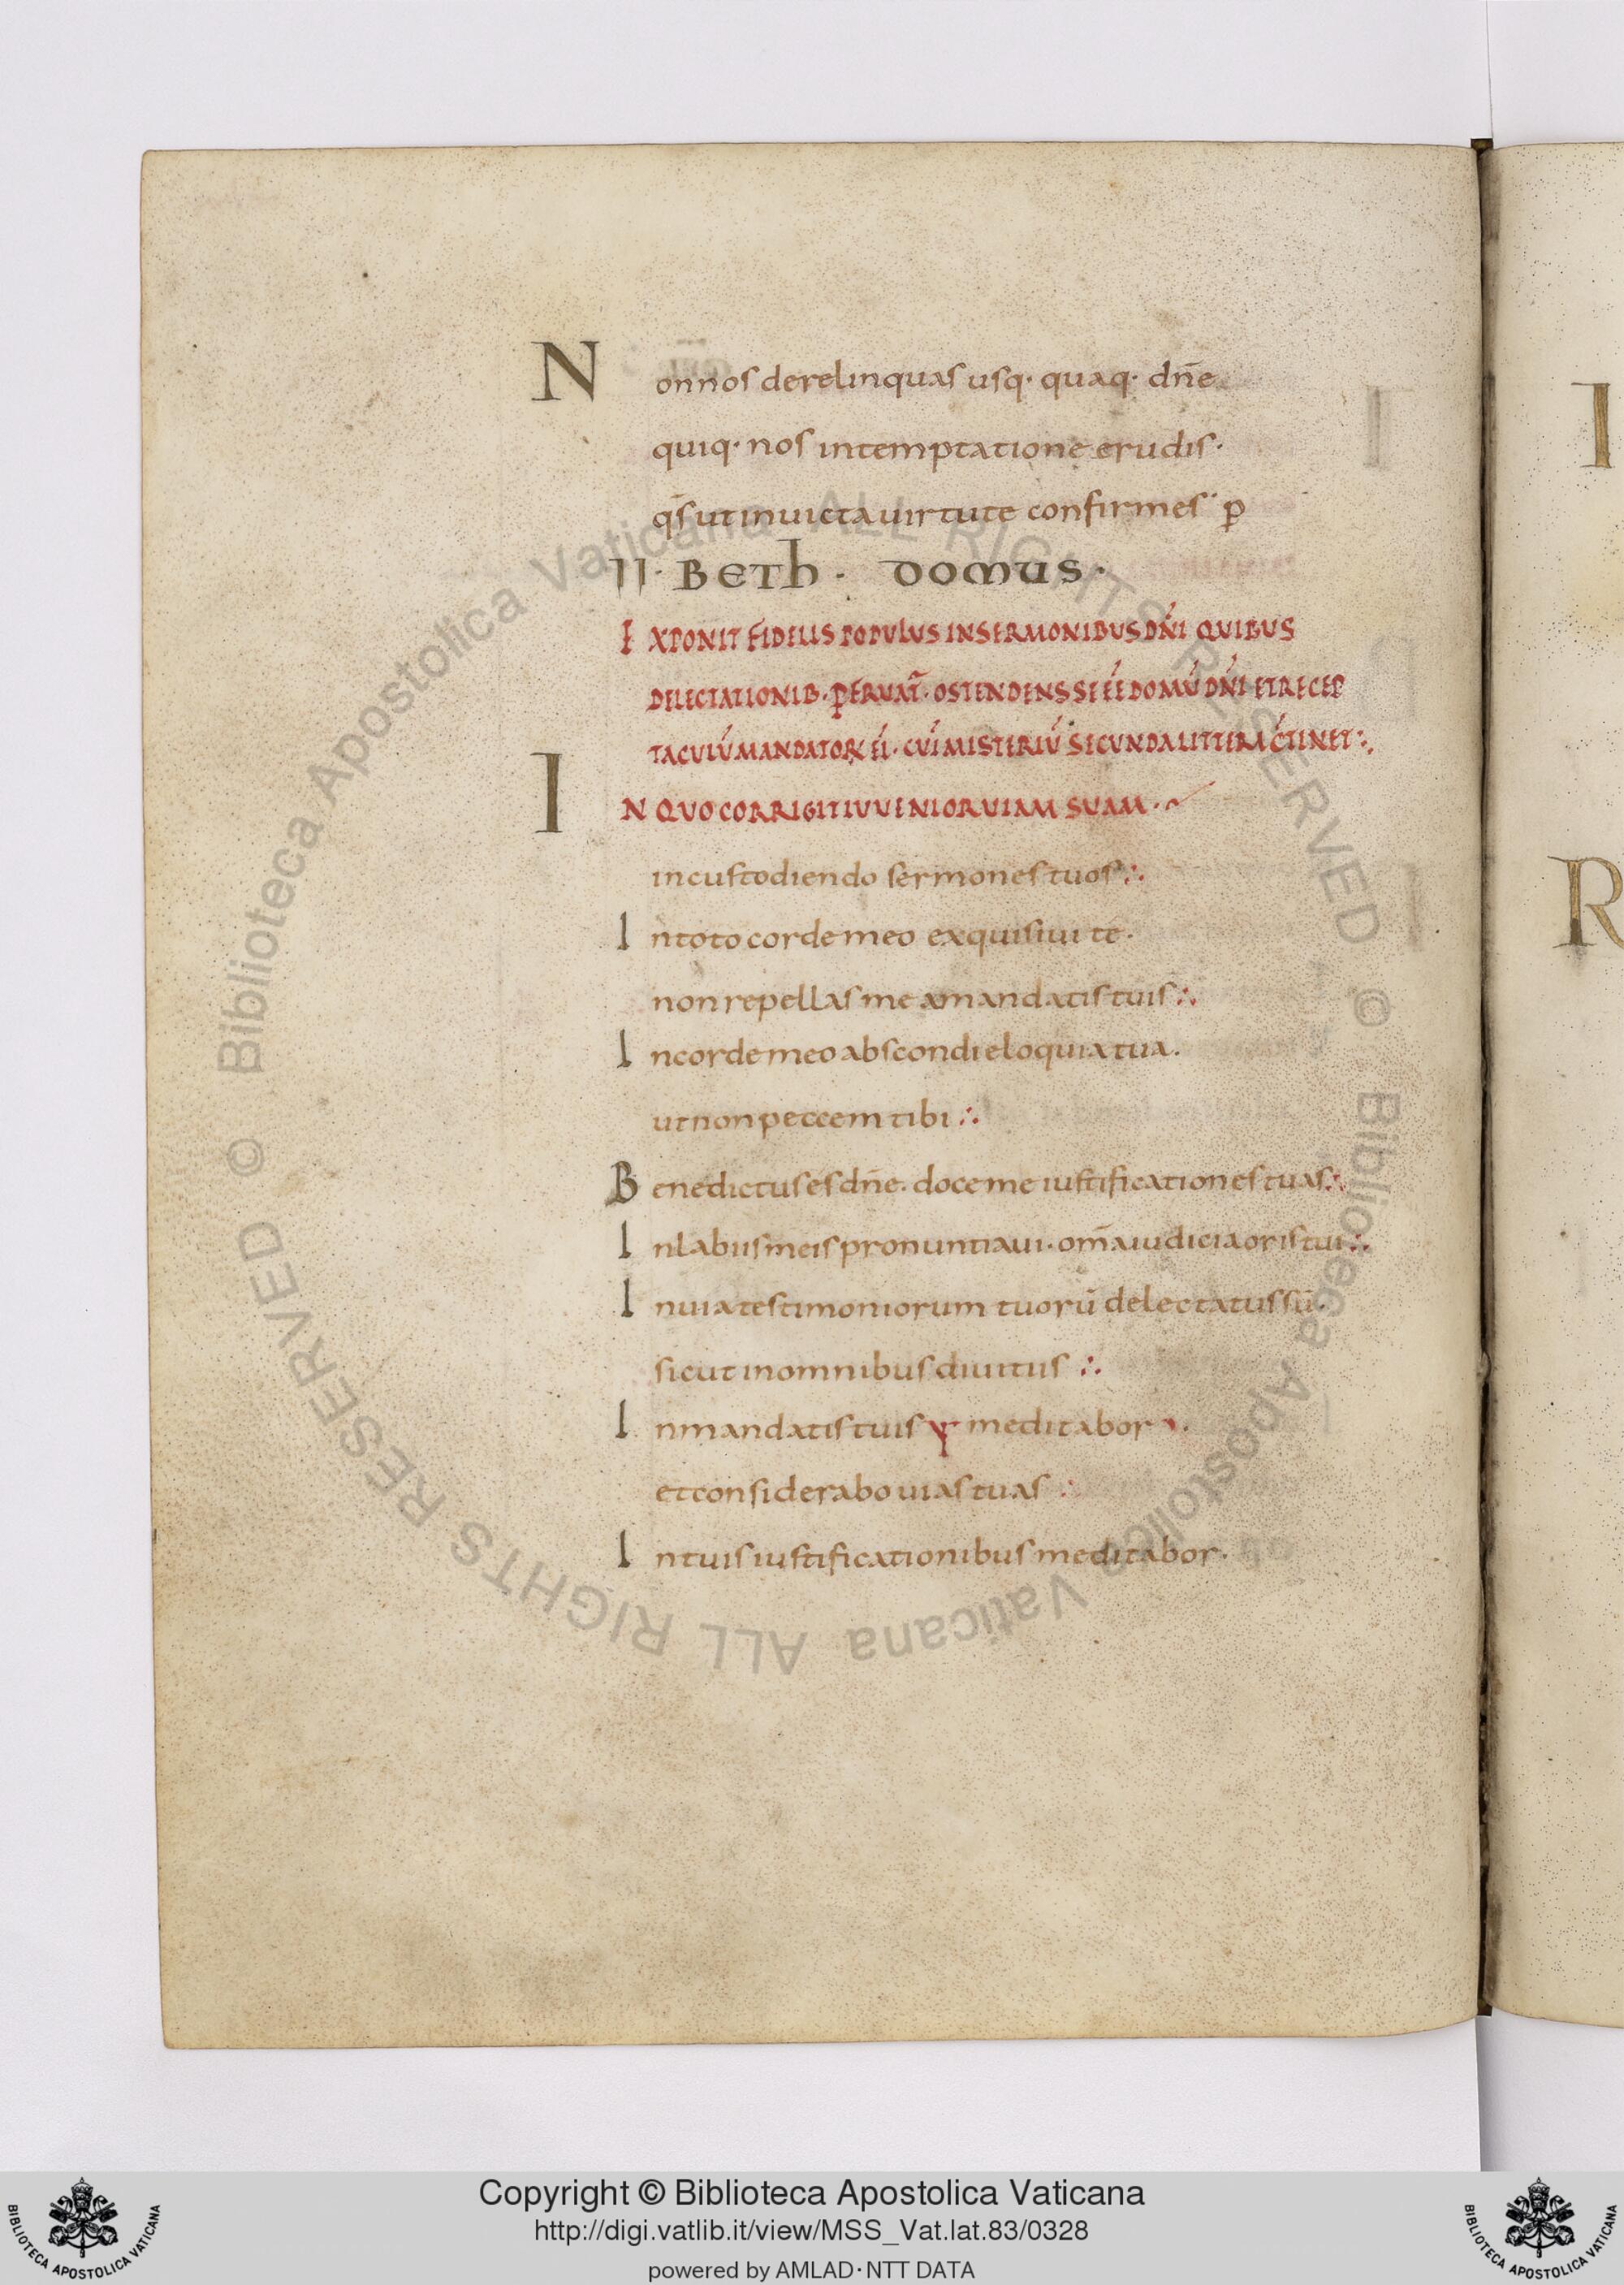 Non nos derelinquas usq· quaq· dñe
quiq· nos intemptatione erudis·
q̄s ut inuicta uirtute confirmes· ꝑ
II· BETh· DOMUS·
EXPONIT FIDELIS POPULUS IN SERMONIBUS DN̄I QUIBUS
DELECTATIONIB· PERUAT̄· OSTENDENS SE EÉ DOMŪ DN̄I ET RECEP
TACULŪ MANDATOR EI· CUI MISTERIŪ SECUNDA LITTERA C̄TINET∴
IN QUO CORRIGIT IUUENIOR UIAM SUAM·
in custodiendo sermones tuos∴
In toto corde meo exquisiui te·
non repellas me a mandatis tuis∴
In corde meo abscondi eloquia tua·
ut non peccem tibi∴
Benedictus es dñe· doce me iustificationes tuas∴
In labiis meis pronuntiaui· om̄a iudicia oris tui∴
In uia testimoniorum tuorū delectatus sū·
sicut in omnibus diuitiis∴
In mandatis tuis meditabor·
et considerabo uias tuas∴
In tuis iustificationibus meditabor·
I
R
© Biblioteca Apostolica Vaticana ALL RIGHTS RESERVED © Biblioteca Apostolica Vaticana ALL RIGHTS RESERVED
Copyright © Biblioteca Apostolica Vaticana
http://digi.vatlib.it/view/MSS_Vat.lat.83/0328
powered by AMLAD·NTT DATA
BIBLIOTECA APOSTOLICA VATICANA
BIBLIOTECA APOSTOLICA VATICANA